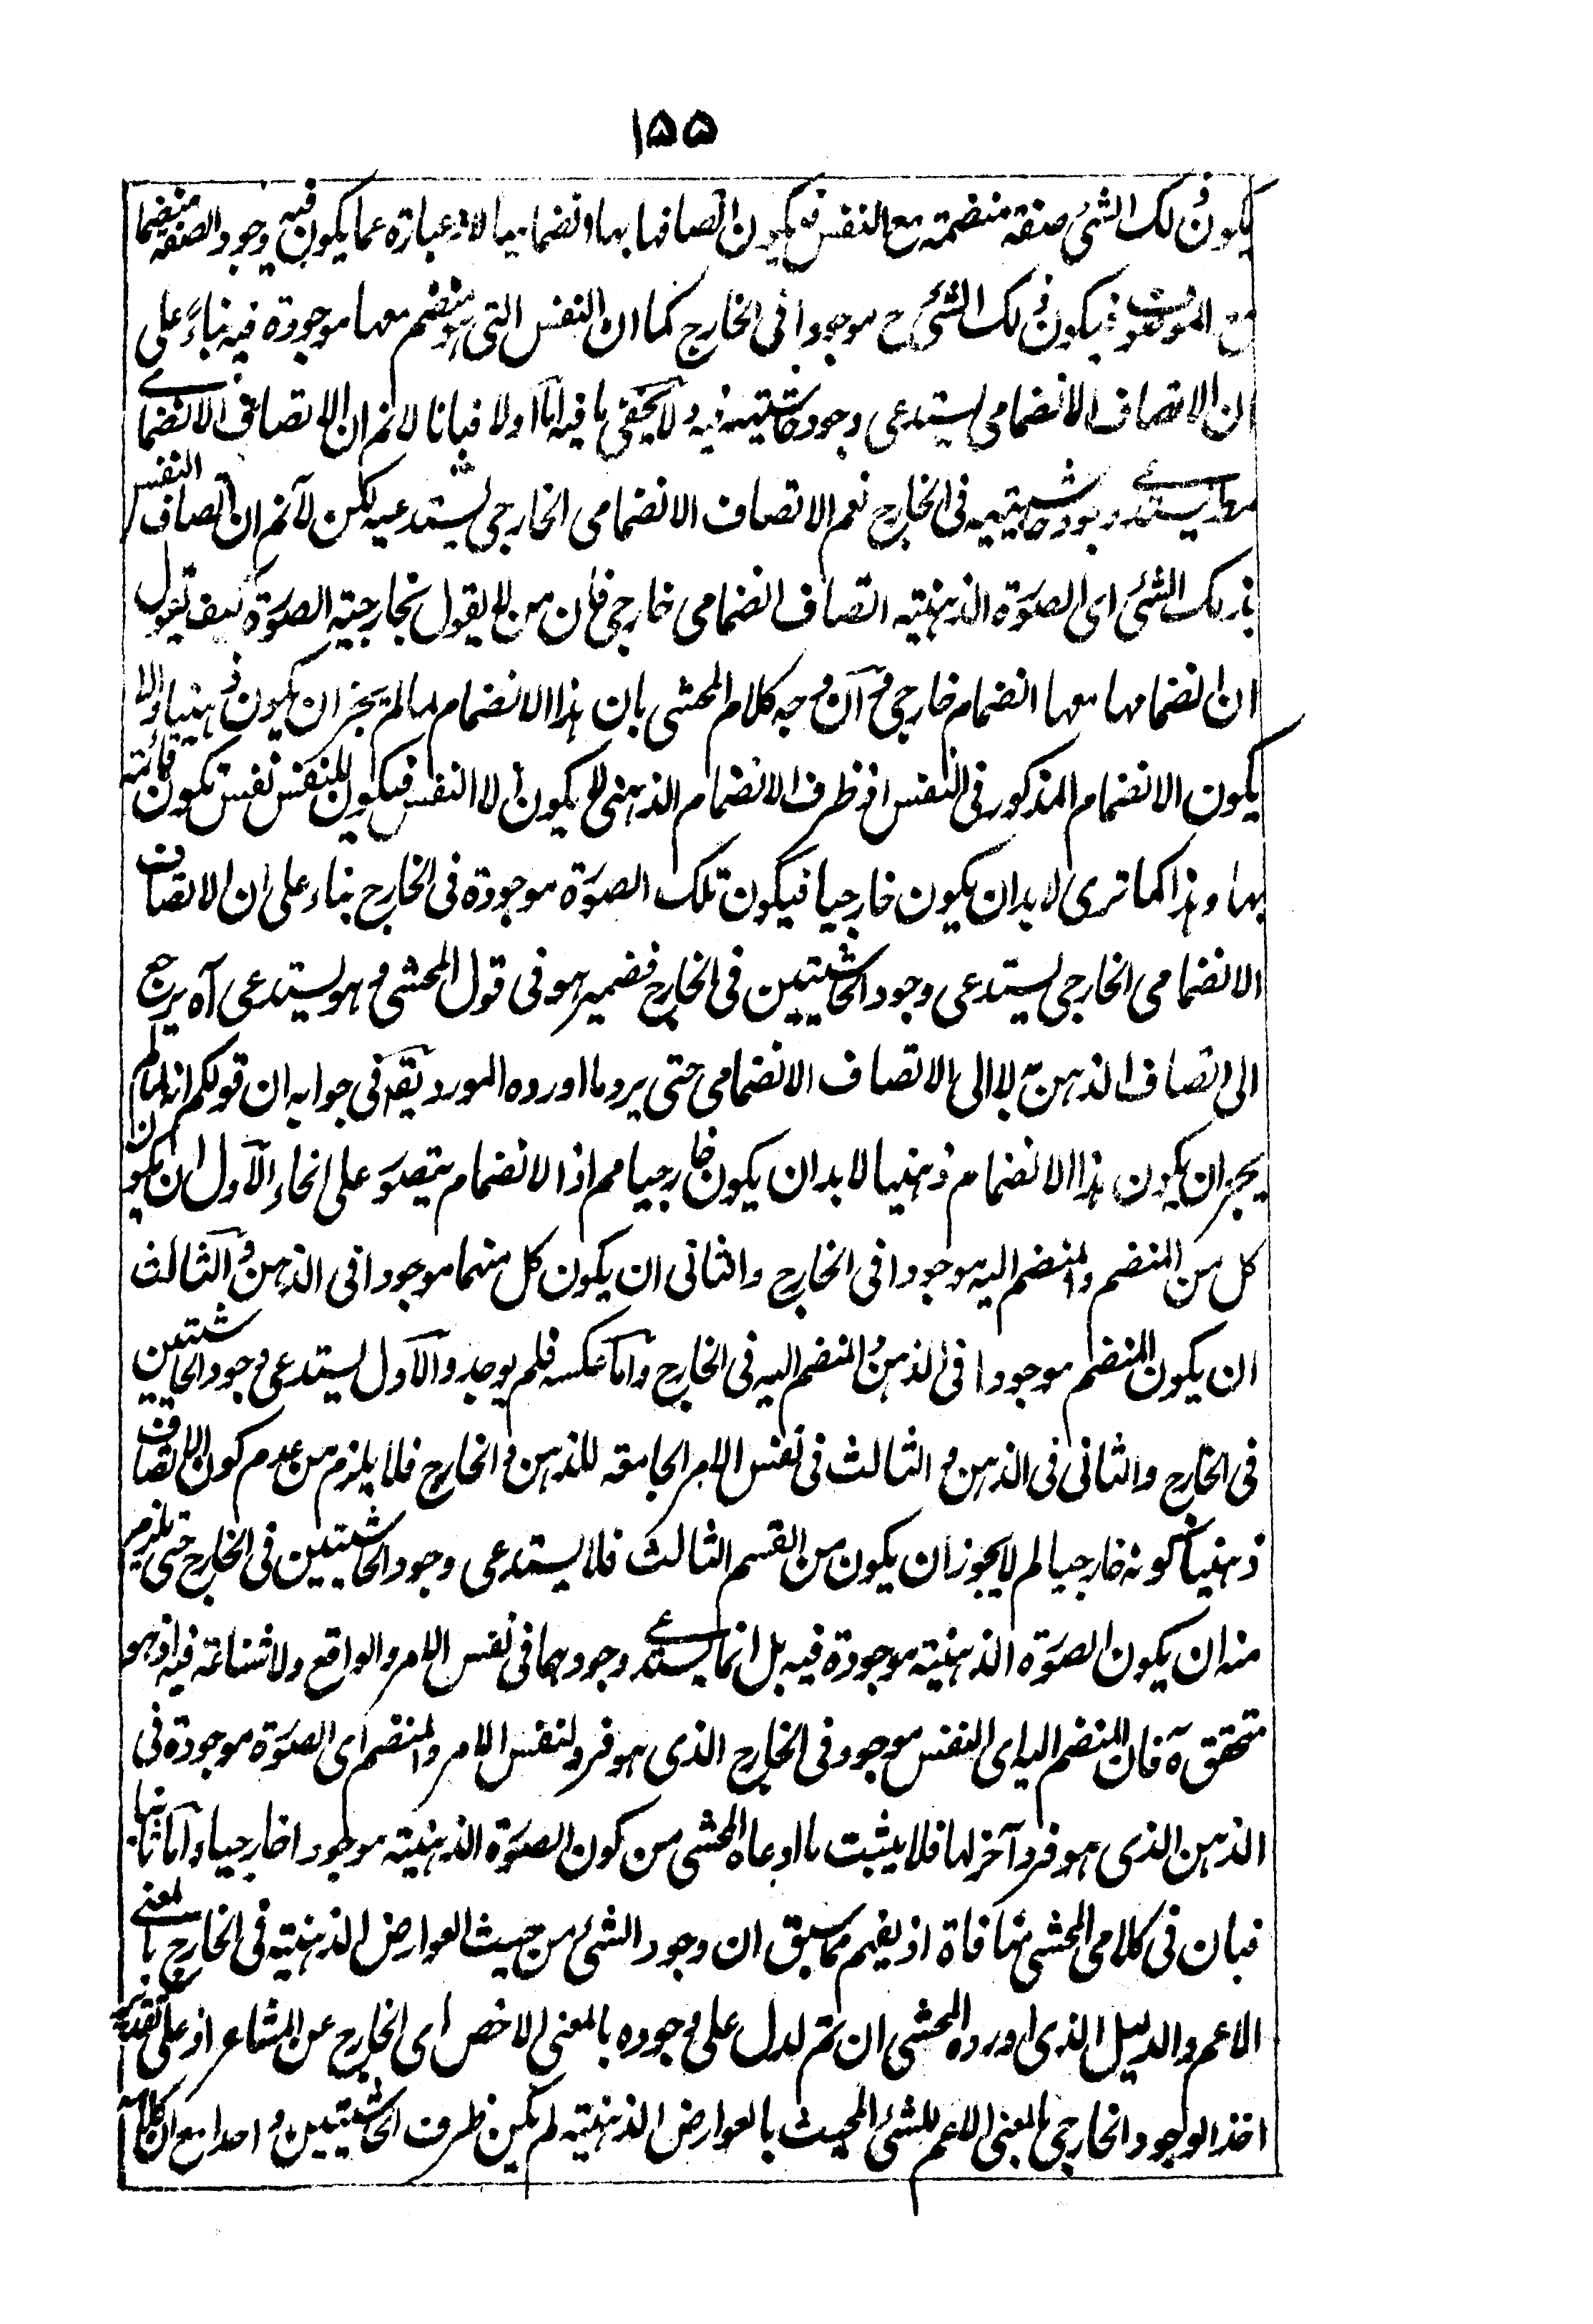 ١٥٥
يكون ذلك الشئ صفة منضمة مع النفس فيكون اتصافها بها انضماميا لانه عبارة عما يكون فيه وجود الصفة منضما
مع الموصوف فيكون ذلك الشئ ح موجودا فى الخارج كما ان النفس التى هو منضم معها موجودة فيه بناءً على
ان الاتصاف الانضمامى يستدعى وجود حاشيتيه فيه ولا يخفى ما فيه اما اولا فبانا لا نم ان الاتصاف الانضمامے
مط يستدعے وجود حاشيتيه فى الخارج نعم الاتصاف الانضمامى الخارجى يستدعيه لكن لا نم ان اتصاف النفس
بذلك الشئ اى الصورة الذهنية اتصاف انضمامى خارجى فان من لا يقول بخارجية الصورة كيف يقول
ان انضمامها معها انضمام خارجى و آن وجه كلام المحشى بان هذا الانضمام لما لم يجز ان يكون ذهنيا والا
يكون الانضمام المذكور فى النفس اذ ظرف الانضمام الذهنى لا يكون الا النفس فيكون للنفس نفس تكون قائمة
بها وهذا كما ترى لا بد ان يكون خارجيا فيكون تلك الصورة موجودة فى الخارج بناء على ان الاتصاف
الانضمامى الخارجى يستدعى وجود الحاشيتين فى الخارج فضمير هو فى قول المحشى و هو يستدعى آه يرجع
الى اتصاف الذهن به لا الى الاتصاف الانضمامى حتى يرد ما اورده المورد يقه فى جوابه ان قولكم انه لما لم
يجز ان يكون هذا الانضمام ذهنيا لا بد ان يكون خارجيا مم اذ الانضمام يتصور على انحاء الآول ان يكون
كل من المنضم والمنضم اليه موجودا فى الخارج والثانى ان يكون كل منهما موجودا فى الذهن و الثالث
ان يكون المنضم موجودا فى الذهن و المنضم اليه فى الخارج وآما عكسه فلم يوجد والآول يستدعى وجود الحاشيتين
فى الخارج والثانى فى الذهن و الثالث فى نفس الامر الجامعة للذهن و الخارج فلا يلزم من عدم كون الاتصاف
ذهنيا كونه خارجيا لم لا يجوز ان يكون من القسم الثالث فلا يستدعى وجود الحاشيتين فى الخارج حتى يلزم
منه ان يكون الصورة الذهنية موجودة فيه بل انما يستدعے وجودهما فى نفس الامر والواقع ولا شناعة فيه اذ هو
متحقق آه فان المنضم اليه اى النفس موجود فى الخارج الذى هو فرد لنفس الامر والمنضم اى الصورة موجودة فى
الذهن الذى هو فرد آخر لها فلا يثبت ما ادعاه المحشى من كون الصورة الذهنية موجودا خارجيا وآما ثانيا
فبان فى كلامى المحشى منافاة اذ يفهم مما سبق ان وجود الشئ من حيث العوارض الذهنية فى الخارج بالمعنى
الاعم والدليل الذى اورده المحشى ان تم لدل على وجوده بالمعنى الاخص اى الخارج عن المشاعر اذ على تقدير
اخذ الوجود الخارجى بالمعنى الاعم للشئ المحيث بالعوارض الذهنية لم يكن ظرف الحاشيتين واحدا مع ان كلامه